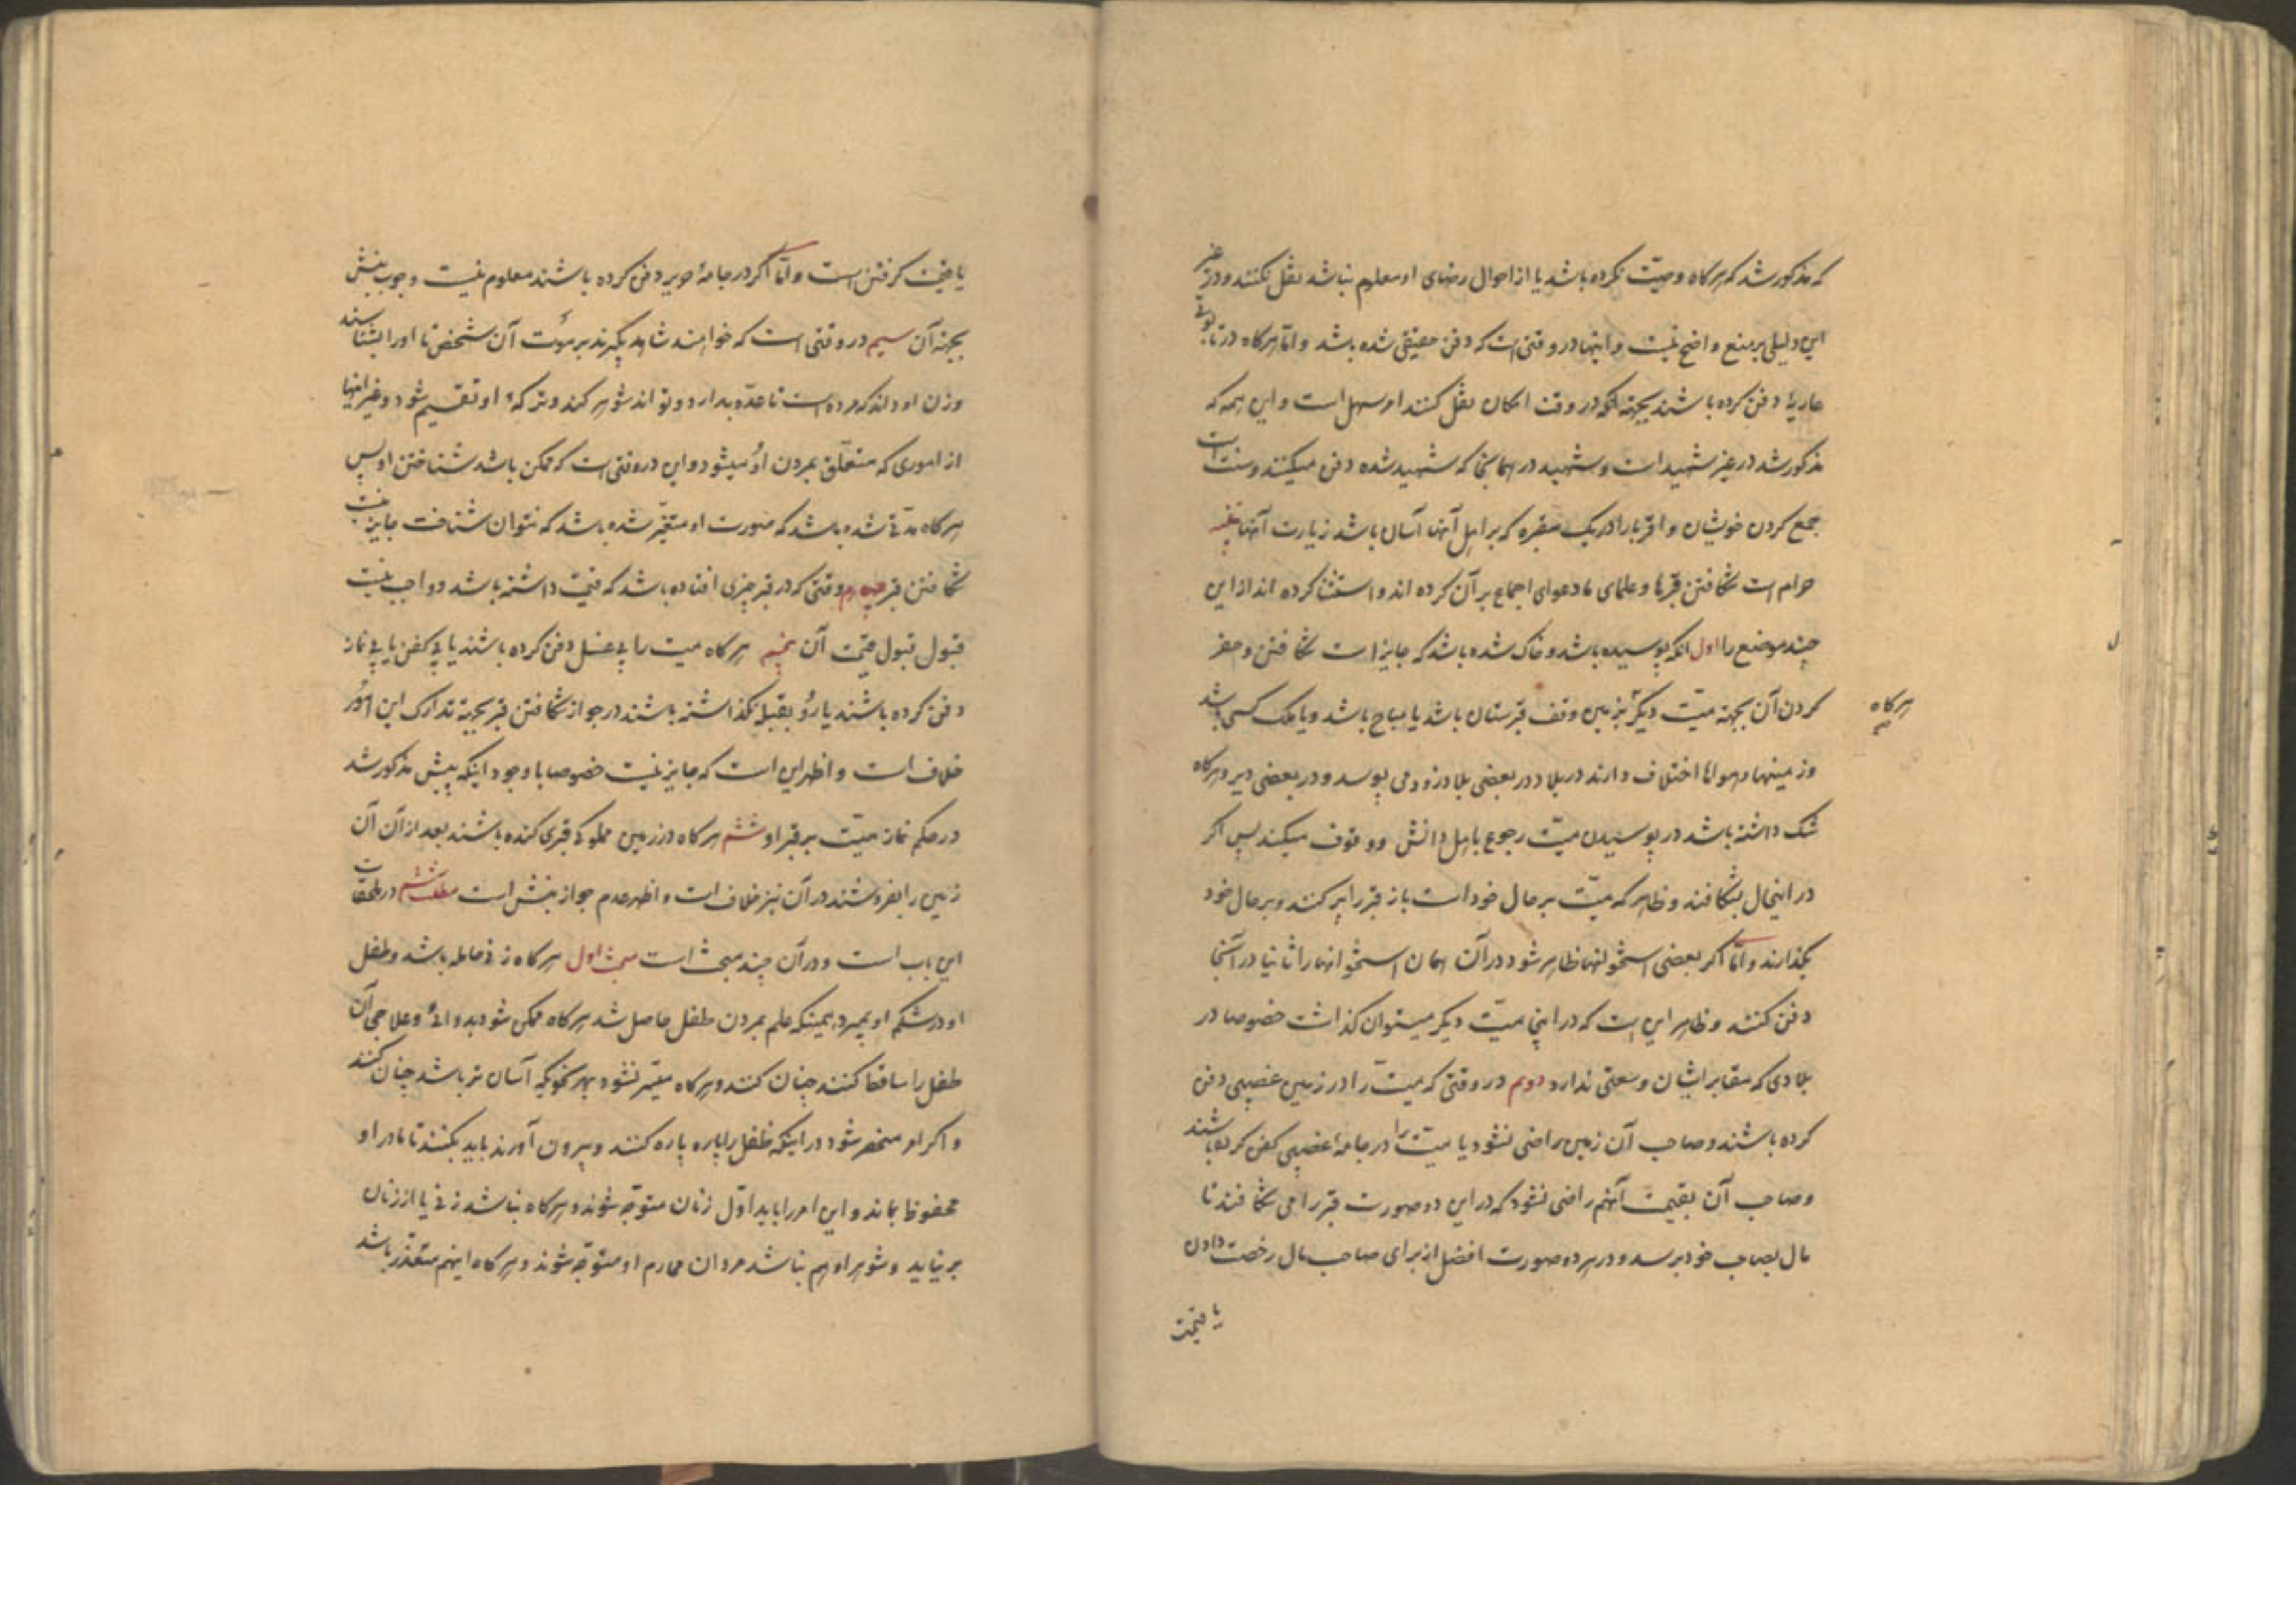 که مذکور شد که هرکاه وصیّت نکرده باشد یا از احوال رضای او معلوم نباشد نقل نکنند و در غیر
این دلیلی بر منع واضح نیست و اینها در وقتی است که دفن حقیقی شده باشد و امّا هرکاه در تابوتی
عاریة دفن کرده باشند بجهة آنکه در وقت امکان نقل کنند امر سهل است و این همه که
مذکور شد در غیر شهید است و شهید در همانجا که شهید شده دفن میکنند و سنّت است
جمع کردن خویشان و اقربا را در یک مقبره که بر اهل آنها آسان باشد زیارت آنها تنبیه
حرام است شکافتن قبرها و علمای ما دعوای اجماع بر آن کرده اند و استثنا کرده اند از این
چند موضع را اول آنکه پوسیده باشد و خاک شده باشد که جایز است شکافتن و حفر
کردن آن بجهة میّت دیگر بزمین وقف قبرستان باشد یا مباح باشد و یا ملک کسی باشد
هرکاه
وزمینها و هواها اختلاف دارند در بلاد در بعضی بلاد زود می پوسد و در بعضی دیر و هرکاه
شک داشته باشد در پوسیدن میّت رجوع باهل دانش و وقوف میکنند پس اکر
در اینحال بشکافند و ظاهر که میّت بر حال خود است باز قبر را پر کنند و بر حال خود
بکذارند و امّا اکر بعضی استخوانها ظاهر شود در آن همان استخوانها را ثانیا در آنجا
دفن کنند و ظاهر این است که در اینجا میّت دیکر میتوان کذاشت خصوصا در
بلادی که مقابر ایشان وسعتی ندارد دوم در وقتی که میّت را در زمین غصبی دفن
کرده باشند و صاحب آن زمین راضی نشود یا میّت را در جامهٔ غصبی کفن کرده باشند
و صاحب آن بقیمت آنهم راضی نشود که در این دو صورت قبر را می شکافند تا
مال بصاحب خود برسد و در هر دو صورت افضل از برای صاحب مال رخصت دادن
یا قیمت
یا قیمت کرفتن است و امّا اکر در جامهٔ حریر دفن کرده باشند معلوم نیست وجوب نبش
بجهة آن سیم در وقتی است که خواهند شاهد بکیرند بر موت آن شخص تا او را بشناسند
و زن او داند که مرده است تا عدّه بدارد و تواند شوهر کند و ترکهٔ او تقسیم شود و غیر اینها
از اموری که متعلّق بمردن او میشود و این در وقتی است که ممکن باشد شناختن او پس
هرکاه مدّتی شده باشد که صورت او متغیّر شده باشد که نتوان شناخت جایز نیست
شکافتن قبر چهارم وقتی که در قبر چیزی افتاده باشد که قیمت داشته باشد و واجب نیست
قبول قبول قیمت آن پنجم هرکاه میت را بی غسل دفن کرده باشند یا بی کفن یا بی نماز
دفن کرده باشند یا رو بقبله نکذاشته باشند در جواز شکافتن قبر بجهة تدارک این امور
خلاف است و اظهر این است که جایز نیست خصوصا با وجود اینکه پیش مذکور شد
در حکم نماز میّت بر قبر او ششم هرکاه در زمین مملوکی قبری کنده باشند بعد از آن آن
زمین را بفروشند در آن نیز خلاف است و اظهر عدم جواز نبش است مطلب ششم در ملحقات
این باب است و در آن چند مبحث است مبحث اول هرکاه زنی حامله باشد و طفل
او در شکم او بمیرد همینکه علم بمردن طفل حاصل شد هرکاه ممکن شود بدوائی و علاجی آن
طفل را ساقط کنند چنان کنند و هرکاه میسّر نشود بهر نحویکه آسان تر باشد چنان کنند
و اکر امر منحصر شود در اینکه طفل را پاره پاره کنند و بیرون آورند باید بکنند تا مادر او
محفوظ بماند و این امر را باید اوّل زنان متوجّه شوند و هرکاه نباشد زنی یا از زنان
بر نیاید و شوهر او هم نباشد مردان محارم او متوجّه شوند و هرکاه اینهم متعذّر باشد